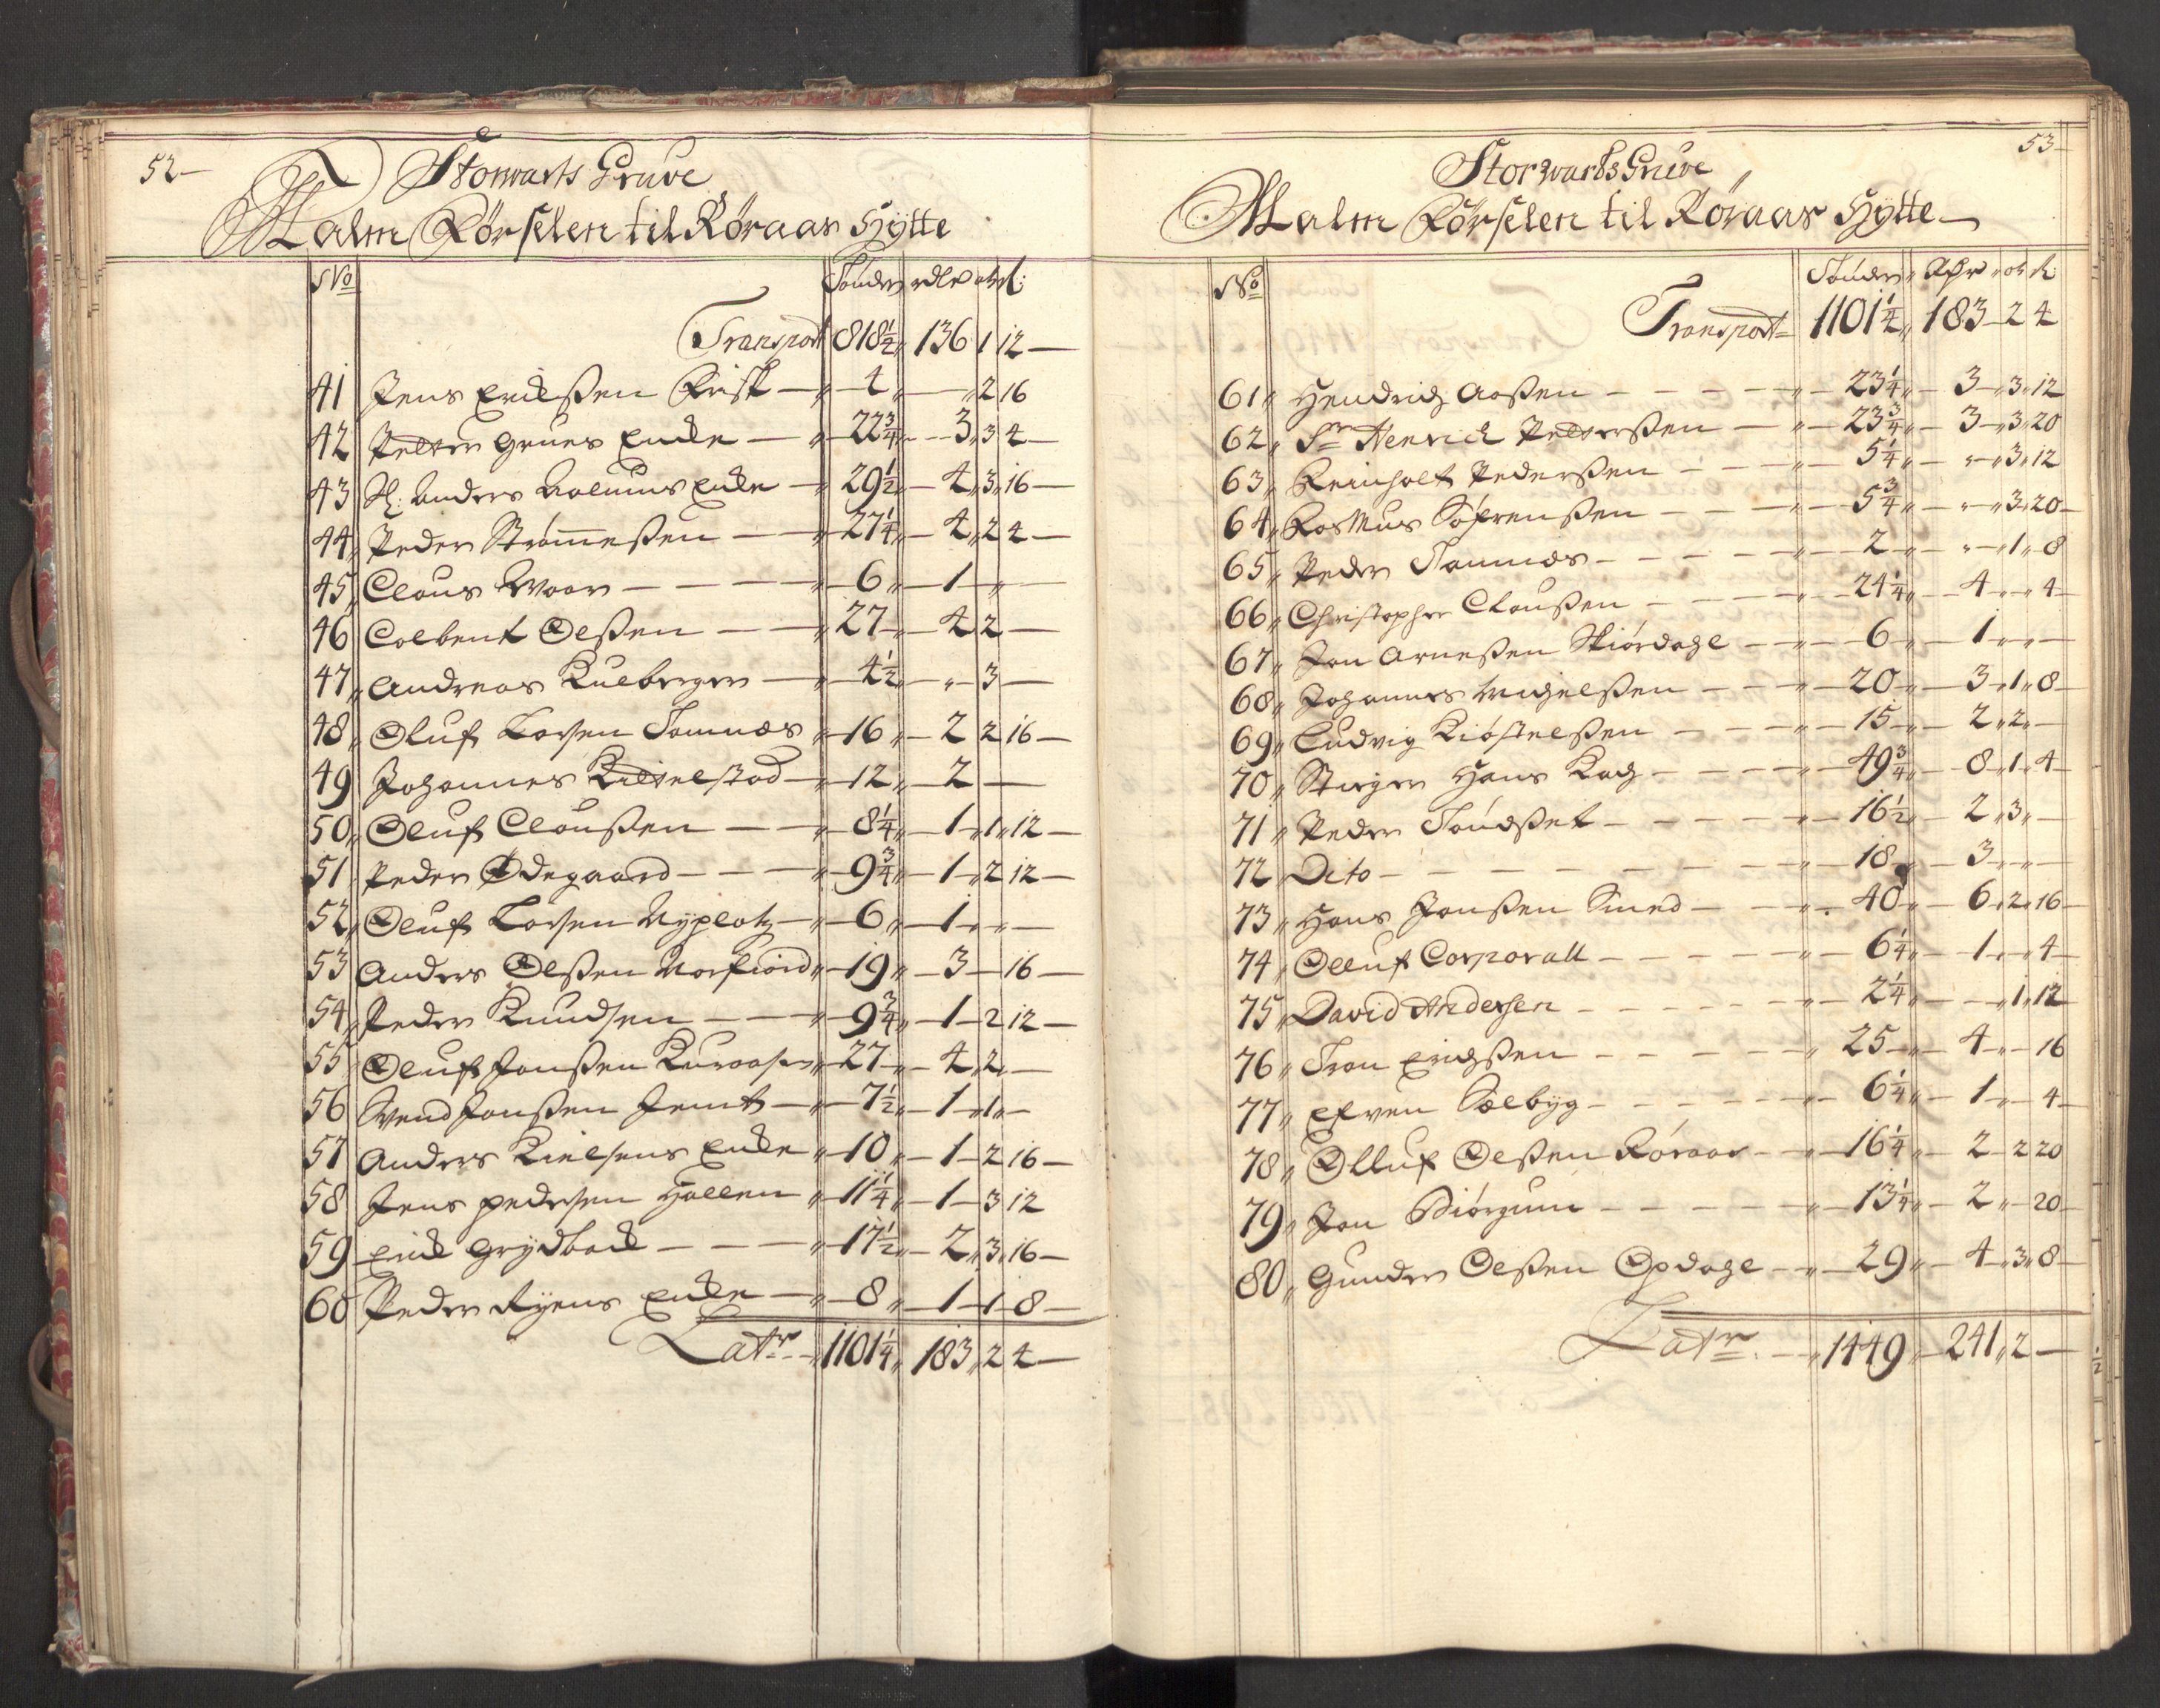 52
Storwarts Gruve
Malm Körselen til Røraas Hytte
No Tönder rdlr ort s:
Transport 818½ 136 1 12
41 Jens Erichßen Frisk 4 2 16
42 Petter Grues Encke 22¾ 3 3 4
43 Sl: Anders Aalmus Encke 29½ 4 3 16
44 Peder Strömmeßen 27¼ 4 2 4
45 Claus Woor 6 1
46 Colbent Olßen 27 4 2
47 Andreas Kulberger 4½ 3
48 Oluf Larsen Tamnæs 16 2 2 16
49 Johannes Kittelstad 12 2
50 Oluf Claußen 8¼ 1 1 12
51 Peder Ødegaard 9¾ 1 2 12
52 Oluf Larsen Nyplatz 6 1
53 Anders Olßen Norfiord 19 3 16
54 Peder Knudsen 9¾ 1 2 12
55 Oluf Jonßen Kuraasen 27 4 2
56 Svend Jonßen Jemt 7½ 1 1
57 Anders Kielsens Encke 10 1 2 16
58 Jens Pedersen Hallen 11¼ 1 3 12
59 Erick Grydback 17½ 2 3 16
60 Peder Ryens Encke 8 1 1 8
Latr 1101¼ 183 2 4
53
Storwarts Gruve
Malm Körselen til Røraas Hytte
No Tönder Rdr ort s
Transport 1101¼ 183 2 4
61 Hendrich Aaßen 23¼ 3 3 12
62 Sr Henrich Petterßen 23¾ 3 3 20
63 Reinholt Pederßen 5¼ 3 12
64 Rasmus Söfrenßen 5¾ 3 20
65 Peder Tamnæs 2 1 8
66 Christopher Claußen 24¼ 4 4
67 Jon Arneßen Skiördahl 6 1
68 Johannes Michelßen 20 3 1 8
69 Ludvig Kiöstelßen 15 2 2
70 Stiger Hans Kach 49¾ 8 1 4
71 Peder Töndset 16½ 2 3
72 Dito 18 3
73 Hans Jonßen Smed 40 6 2 16
74 Olluf Corporall 6¼ 1 4
75 David Andersen 2¼ 1 12
76 Tron Erichßen 25 4 16
77 Efven Sælbyg 6¼ 1 4
78 Olluf Olßen Röraas 16¼ 2 2 20
79 Jon Biörgum 13¼ 2 20
80 Gunder Olßen Opdahl 29 4 3 8
Latr 1449 241 2